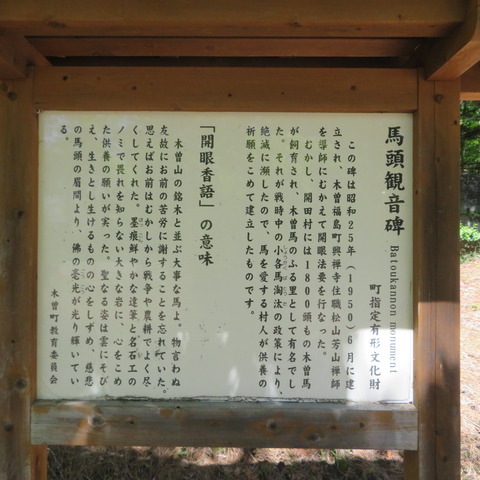 馬頭観音碑
Batoukannon monument
町指定有形文化財
この碑は昭和25年(1950)6月に建
立され、木曽福島町興禅寺住職松山芳山禅師
を導師にむかえて開眼法要を行なった。
むかし、開田村には1800頭もの木曽馬
が飼育され、木曽馬のふる里として有名でし
た。それが戦時中の小格馬淘汰の政策により、
絶滅に瀕したので、馬を愛する村人が供養の
祈願をこめて建立したものです。
「開眼香語」の意味
木曽山の銘木と並ぶ大事な馬よ。物言わぬ
友故にお前の苦労に謝することを忘れていた。
思えばお前はむかしから戦争や農耕でよく尽
くしてくれた。墨痕鮮やかな達筆と名石工の
ノミで畏れを知らない大きな岩に、心をこめ
た供養の願いが実った。聖なる姿は雲にそび
え、生きとし生けるものの心をしずめ、慈悲
の馬頭の眉間より、佛の毫光が光り輝いてい
る。
木曽町教育委員会